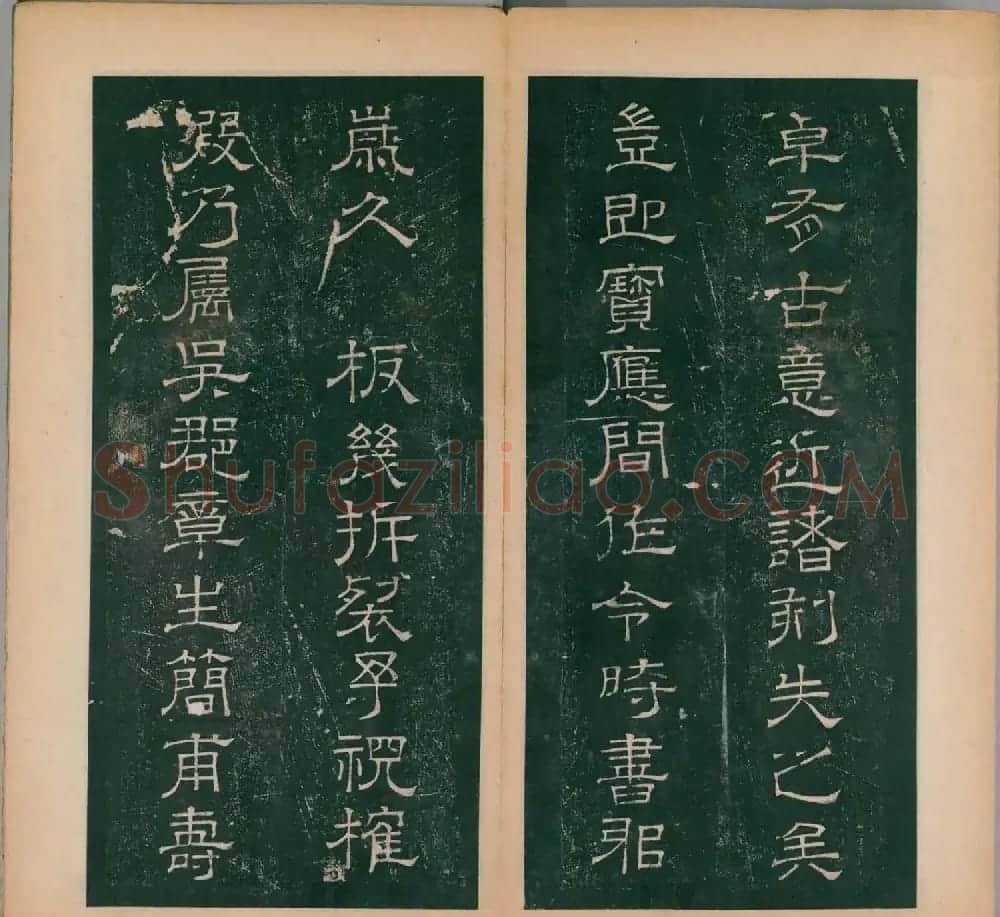 卓有古意近諸刻失之矣
豈即寶應間作令時書耶
歲久板幾折裂予視搉
暇乃屬吳郡章生簡甫壽
Shufaziliao.COM